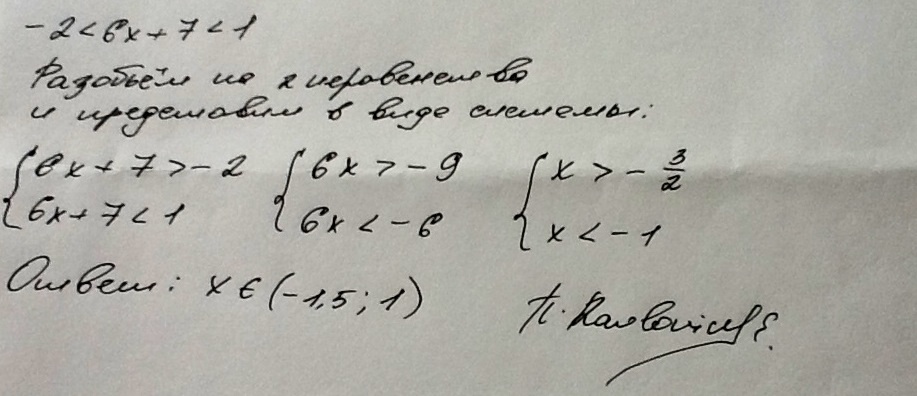 -2<6x+7<1
Разобьём на 2 неравенства
и представим в виде системы:
{6x+7>-2 {6x>-9 {x>-3/2
{6x+7<1 {6x<-6 {x<-1
Ответ: x∈(-1,5;1)